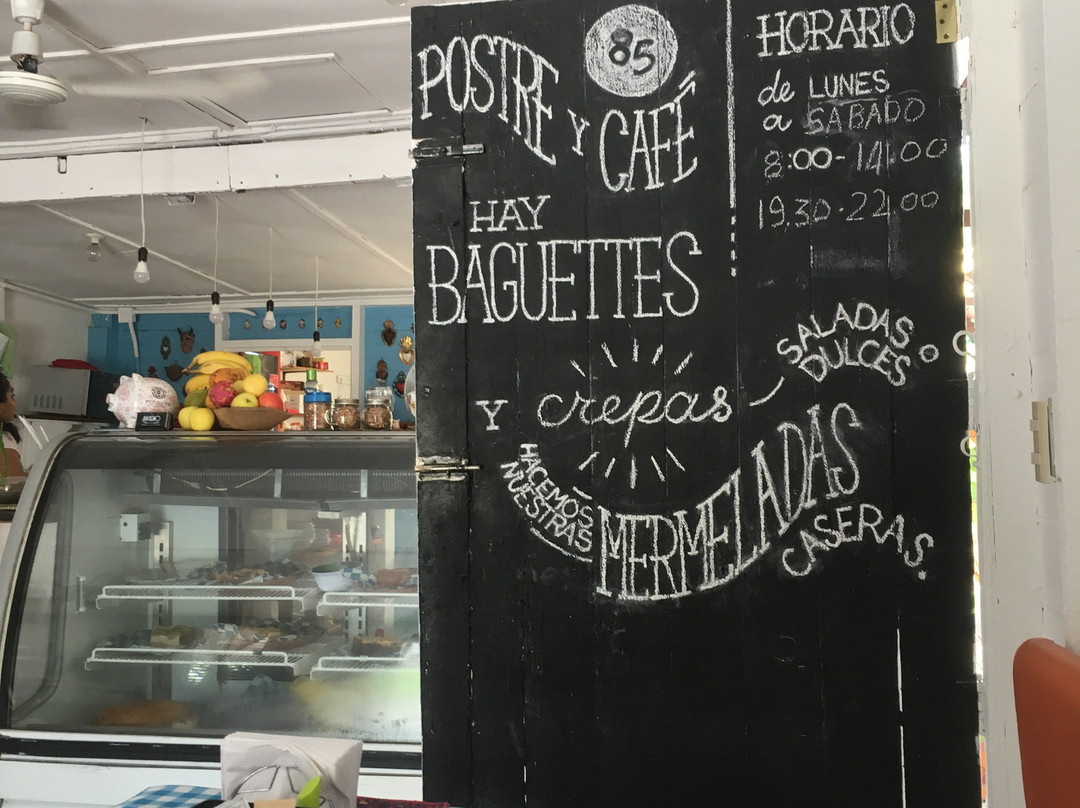 POSTRE
85
Y CAFÉ
HAY
BAGUETTES
Y crepas
SALADAS
O
DULCES
HACEMOS
NUESTRAS
MERMELADAS
CASERAS.
HORARIO
de LUNES
a SABADO
8:00-14.00
19.30-22.00